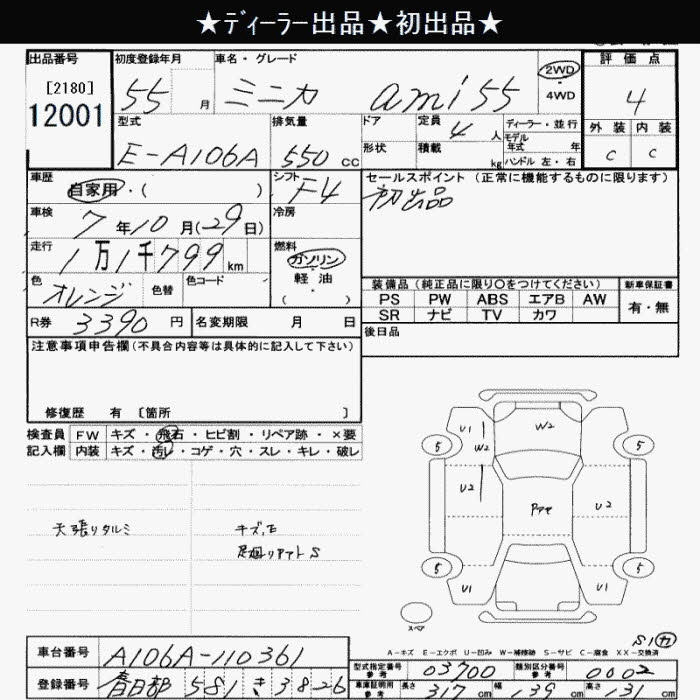 ★ディーラー出品★初出品★
出品番号 初度登録年月 車名・グレード 評価点
[2180] 12001 55 月 ミニカ ami55 2WD 4WD 4
型式 排気量 ドア 定員 4 人 ディーラー・並行 外装 内装
E-A106A 550 cc 形状 積載 kg モデル年式 年 ハンドル 左・右 C C
車歴 自家用・( ) シフト F4 セールスポイント (正常に機能するものに限ります)
車検 7年10月(29日) 冷房 初出品
走行 1万1千799 km 燃料 ガソリン・軽油・( )
色 オレンジ 色替 色コード
装備品 (純正品に限り〇をつけてください) 新車保証書
PS PW ABS エアB AW 有・無
SR ナビ TV カワ
R券 3390 円 名変期限 月 日 後日品
注意事項申告欄 (不具合内容等は具体的に記入して下さい)
修復歴 有 [箇所 ]
検査員 FW キズ・飛石・ヒビ割・リペア跡・×要
記入欄 内装 キズ・汚レ・コゲ・穴・スレ・キレ・破レ
天張りタルミ キズ,E
S
U1 W2 W2 U1
5 5
U2 U2
5 5
U1 U1
スペア
S1 カ
A-キズ E-エクボ U-凹み W-補修跡 S-サビ C-腐食 XX-交換済
車台番号 A106A-110361
型式指定番号 参考 03700 類別区分番号 参考 0002
登録番号 春日部 581 き 3826
車庫証明用 参考 長さ 317 cm 幅 139 cm 高さ 131 cm